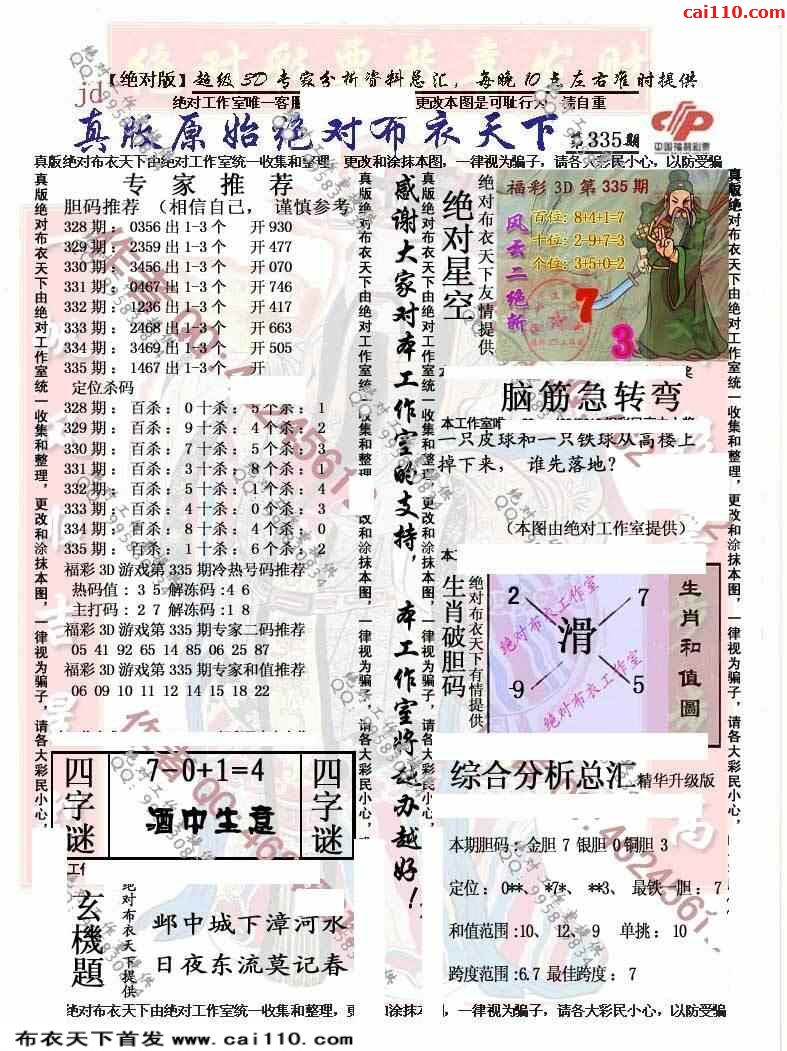 cai110.com
【绝对版】超级3D专家分析资料总汇，每晚10点左右准时提供
jd
绝对工作室唯一客服
更改本图是可耻行为 请自重
真版原始绝对布衣天下
第335期
中国福利彩票
真版绝对布衣天下由绝对工作室统一收集和整理，更改和涂抹本图，一律视为骗子，请各大彩民小心，以防受骗
真版绝对布衣天下由绝对工作室统一收集和整理，更改和涂抹本图，一律视为骗子，请各大彩民小心，
专家推荐
胆码推荐 （相信自己， 谨慎参考
328期： 0356出1-3个 开930
329期： 2359出1-3个 开477
330期： 3456出1-3个 开070
331期： 0467出1-3个 开746
332期： 1236出1-3个 开417
333期： 2468出1-3个 开663
334期： 3469出1-3个 开505
335期： 1467出1-3个 开
定位杀码
328期： 百杀： 0十杀： 5个杀： 1
329期： 百杀： 9十杀： 4个杀： 2
330期： 百杀： 7十杀： 5个杀： 3
331期： 百杀： 3十杀： 8个杀： 1
332期： 百杀： 5十杀： 1个杀： 4
333期： 百杀： 4十杀： 0个杀： 3
334期： 百杀： 8十杀： 4个杀： 0
335期： 百杀： 1十杀： 6个杀： 2
福彩3D游戏第335期冷热号码推荐
热码值：3 5 解冻码:4 6
主打码：2 7 解冻码:1 8
福彩3D游戏第335期专家二码推荐
05 41 92 65 14 85 06 25 87
福彩3D游戏第335期专家和值推荐
06 09 10 11 12 14 15 18 22
四字谜
7-0+1=4
酒中生意
四字谜
玄機題
绝对布衣天下提供
邺中城下漳河水
日夜东流莫记春
真版绝对布衣天下由绝对工作室统一收集和整理，更改和涂抹本图，一律视为骗子，请各大彩民小心，
感谢大家对本工作室的支持，本工作室将越办越好！
真版绝对布衣天下由绝对工作室统一收集和整理，更改和涂抹本图，一律视为骗子，请各大彩民小心，
绝对星空
绝对布衣天下友情提供
福彩3D第335期
风云二绝斩
百位：8+4+1=7
十位：2-9+7=3
个位：3+5+0=2
7
3
脑筋急转弯
本工作室唯
一只皮球和一只铁球从高楼上
掉下来， 谁先落地？
（本图由绝对工作室提供）
生肖破胆码
绝对布衣天下有情提供
2
7
滑
9
5
绝对布衣工作室
绝对布衣工作室
生肖和值圖
综合分析总汇 精华升级版
本期胆码：金胆 7 银胆 0铜胆 3
定位： 0**、 *7*、 **3、 最铁一胆： 7
和值范围:10、 12、 9 单挑： 10
跨度范围:6.7 最佳跨度： 7
真版绝对布衣天下由绝对工作室统一收集和整理，更改和涂抹本图，一律视为骗子，请各大彩民小心，
绝对布衣天下由绝对工作室统一收集和整理，更
和涂抹本
，一律视为骗子，请各大彩民小心，以防受骗
布衣天下首发 www.cai110.com